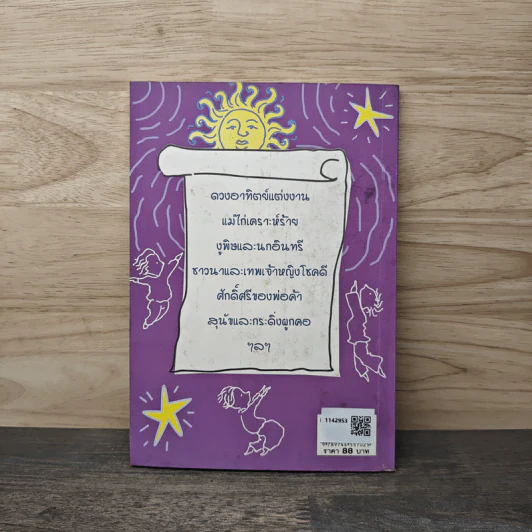 ดวงอาทิตย์แต่งงาน
แม่ไก่เคราะห์ร้าย
งูพิษและนกอินทรี
ชาวนาและเทพเจ้าหญิงโชคดี
ศักดิ์ศรีของพ่อค้า
สุนัขและกระดิ่งผูกคอ
ฯลฯ
1142953
ราคา 88 บาท